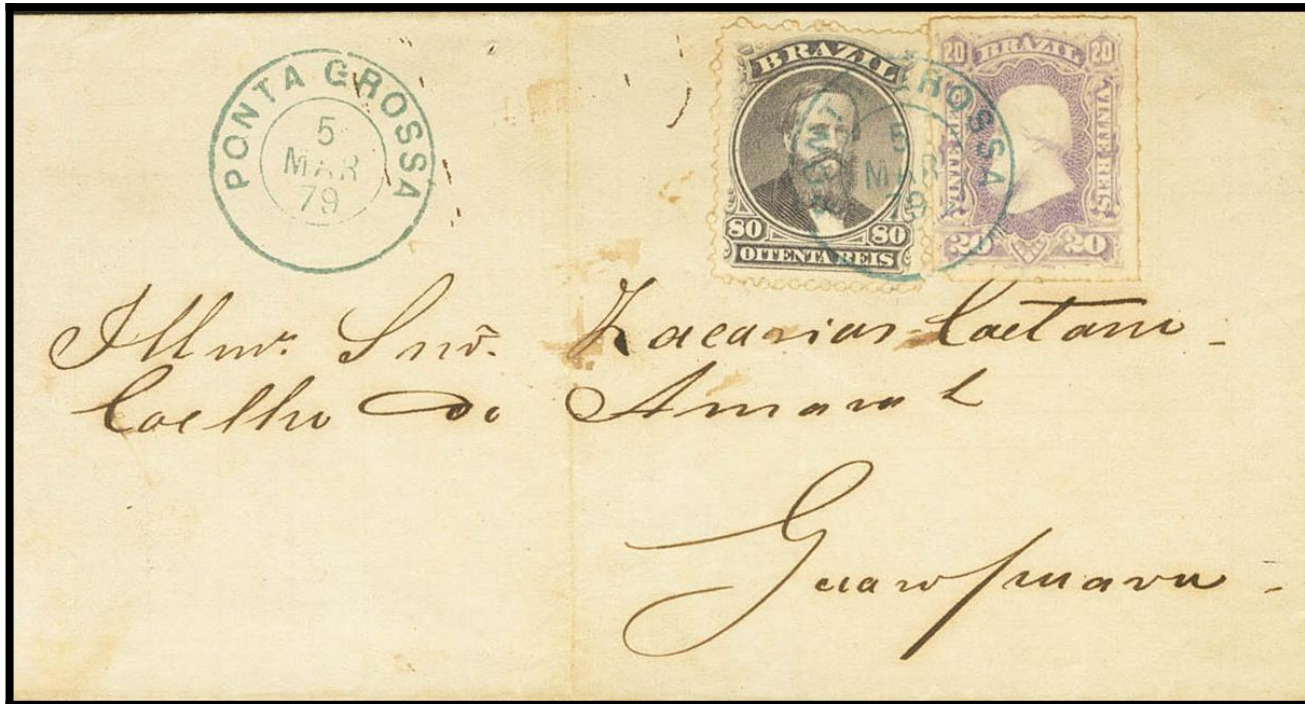 PONTA GROSSA
5
MAR
79
BRAZIL
80 80
OITENTA REIS
GROSSA
5
MAR
79
20 BRAZIL 20
VINTE REIS
VINTE REIS
20 20
Illmo. Snr. Zacarias Caetano
Coelho do Amaral
Guarapuava